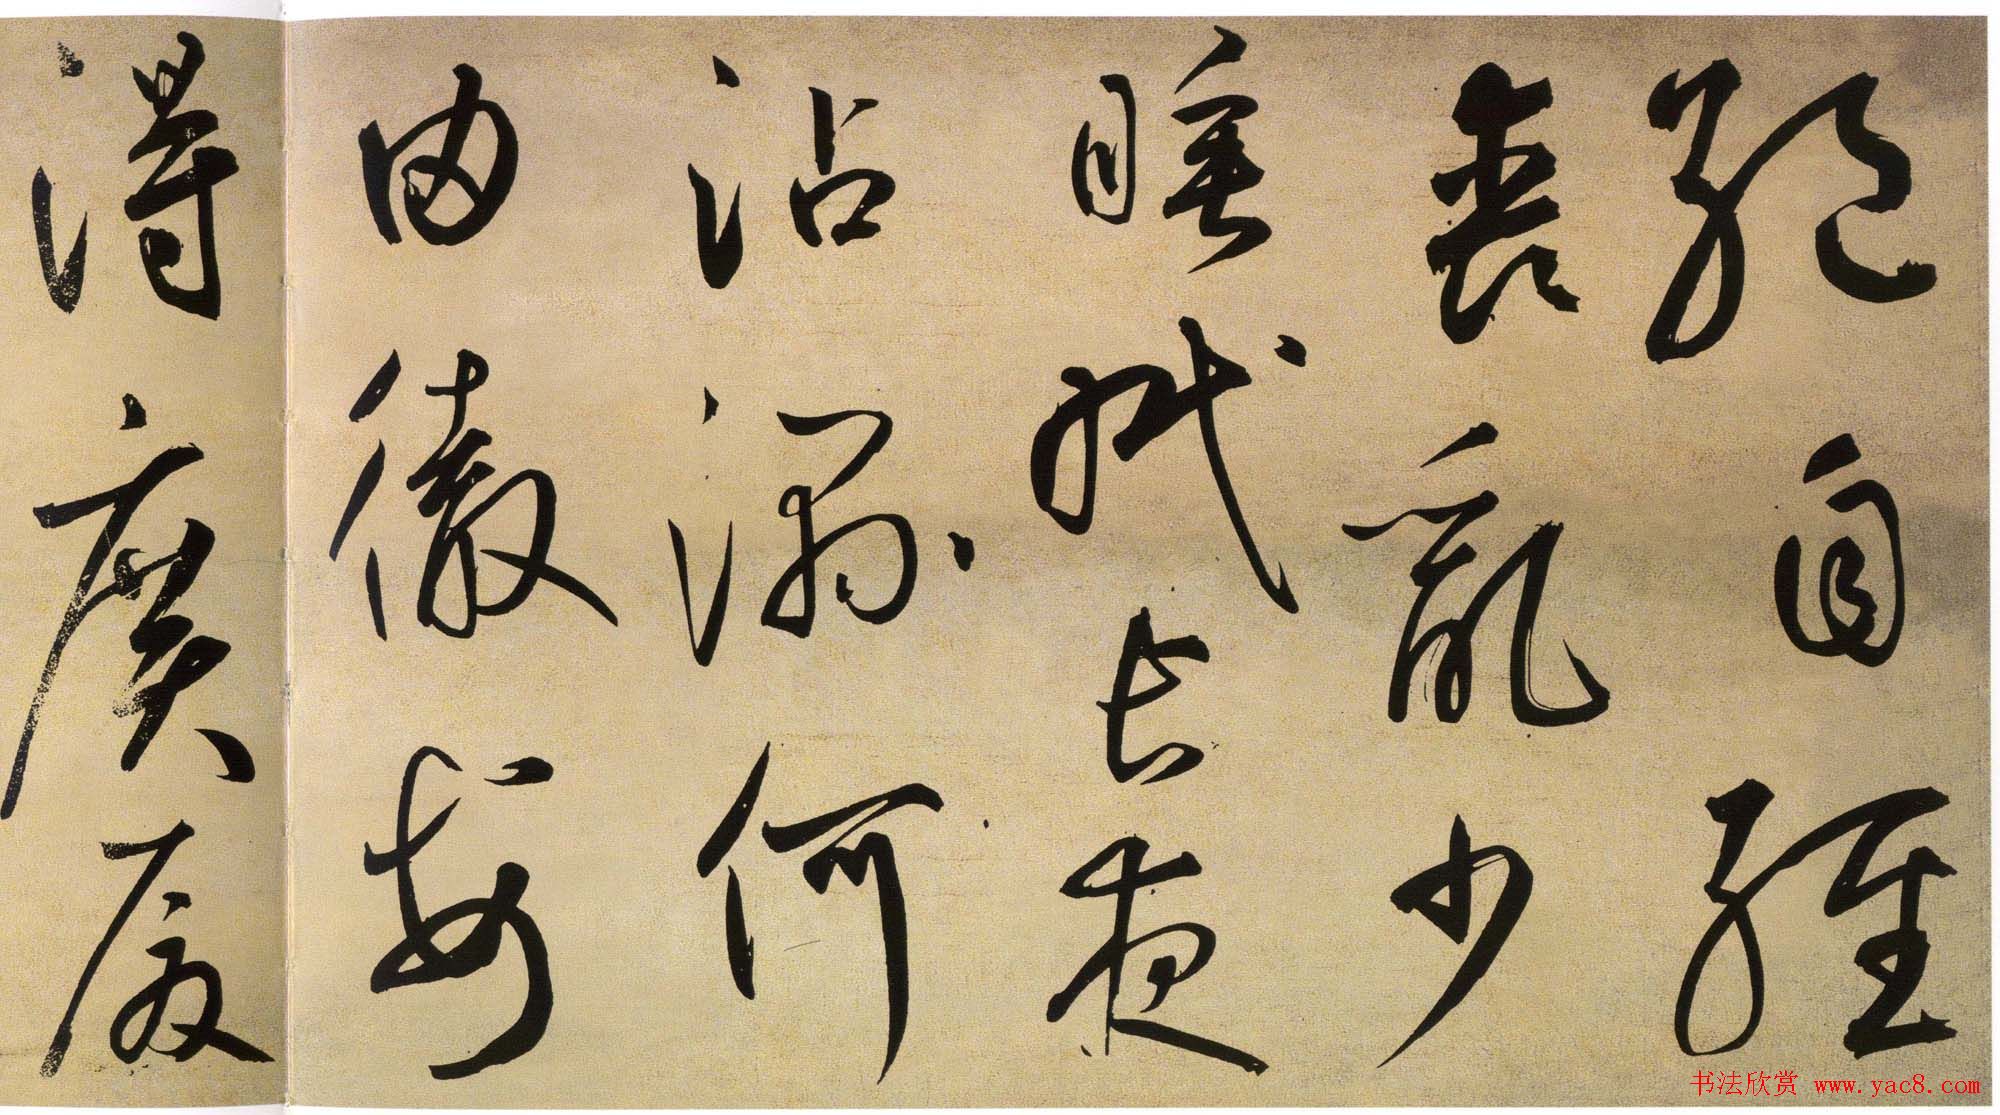 絕自經
喪亂少
睡眠長夜
沾濕何
由徹安
得廣廈
书法欣赏 www.yac8.com